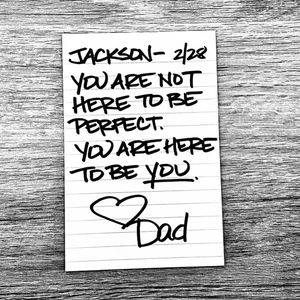 JACKSON- 2/28
YOU ARE NOT
HERE TO BE
PERFECT.
YOU ARE HERE
TO BE YOU.
Dad